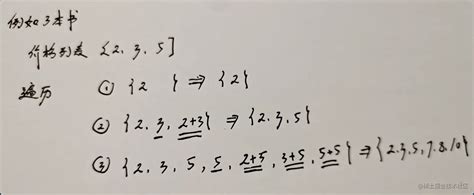 例如 3本书
价格列表 [2, 3, 5]
遍历 ① {2 } ⇒ {2}
② {2, 3, 2+3} ⇒ {2, 3, 5}
③ {2, 3, 5, 5, 2+5, 3+5, 5+5} ⇒ {2.3.5,7.8.10}
@稀土掘金技术社区